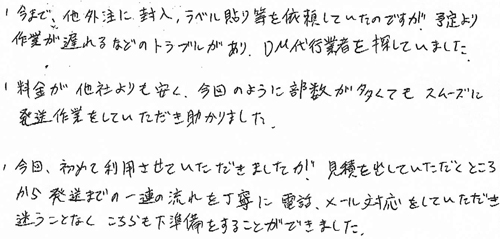 、今まで、他外注に封入、ラベル貼り等を依頼していたのですが 予定より
作業が遅れるなどのトラブルがあり、DM代行業者を探していました。
、料金が他社よりも安く、今回のように部数が多くても スムーズに
発送作業をしていただき助かりました。
、今回、初めて利用させていただきましたが、見積を出していただくところ
から発送までの一連の流れを丁寧に電話、メール対応をしていただき
迷うことなくこちらも下準備をすることができました。